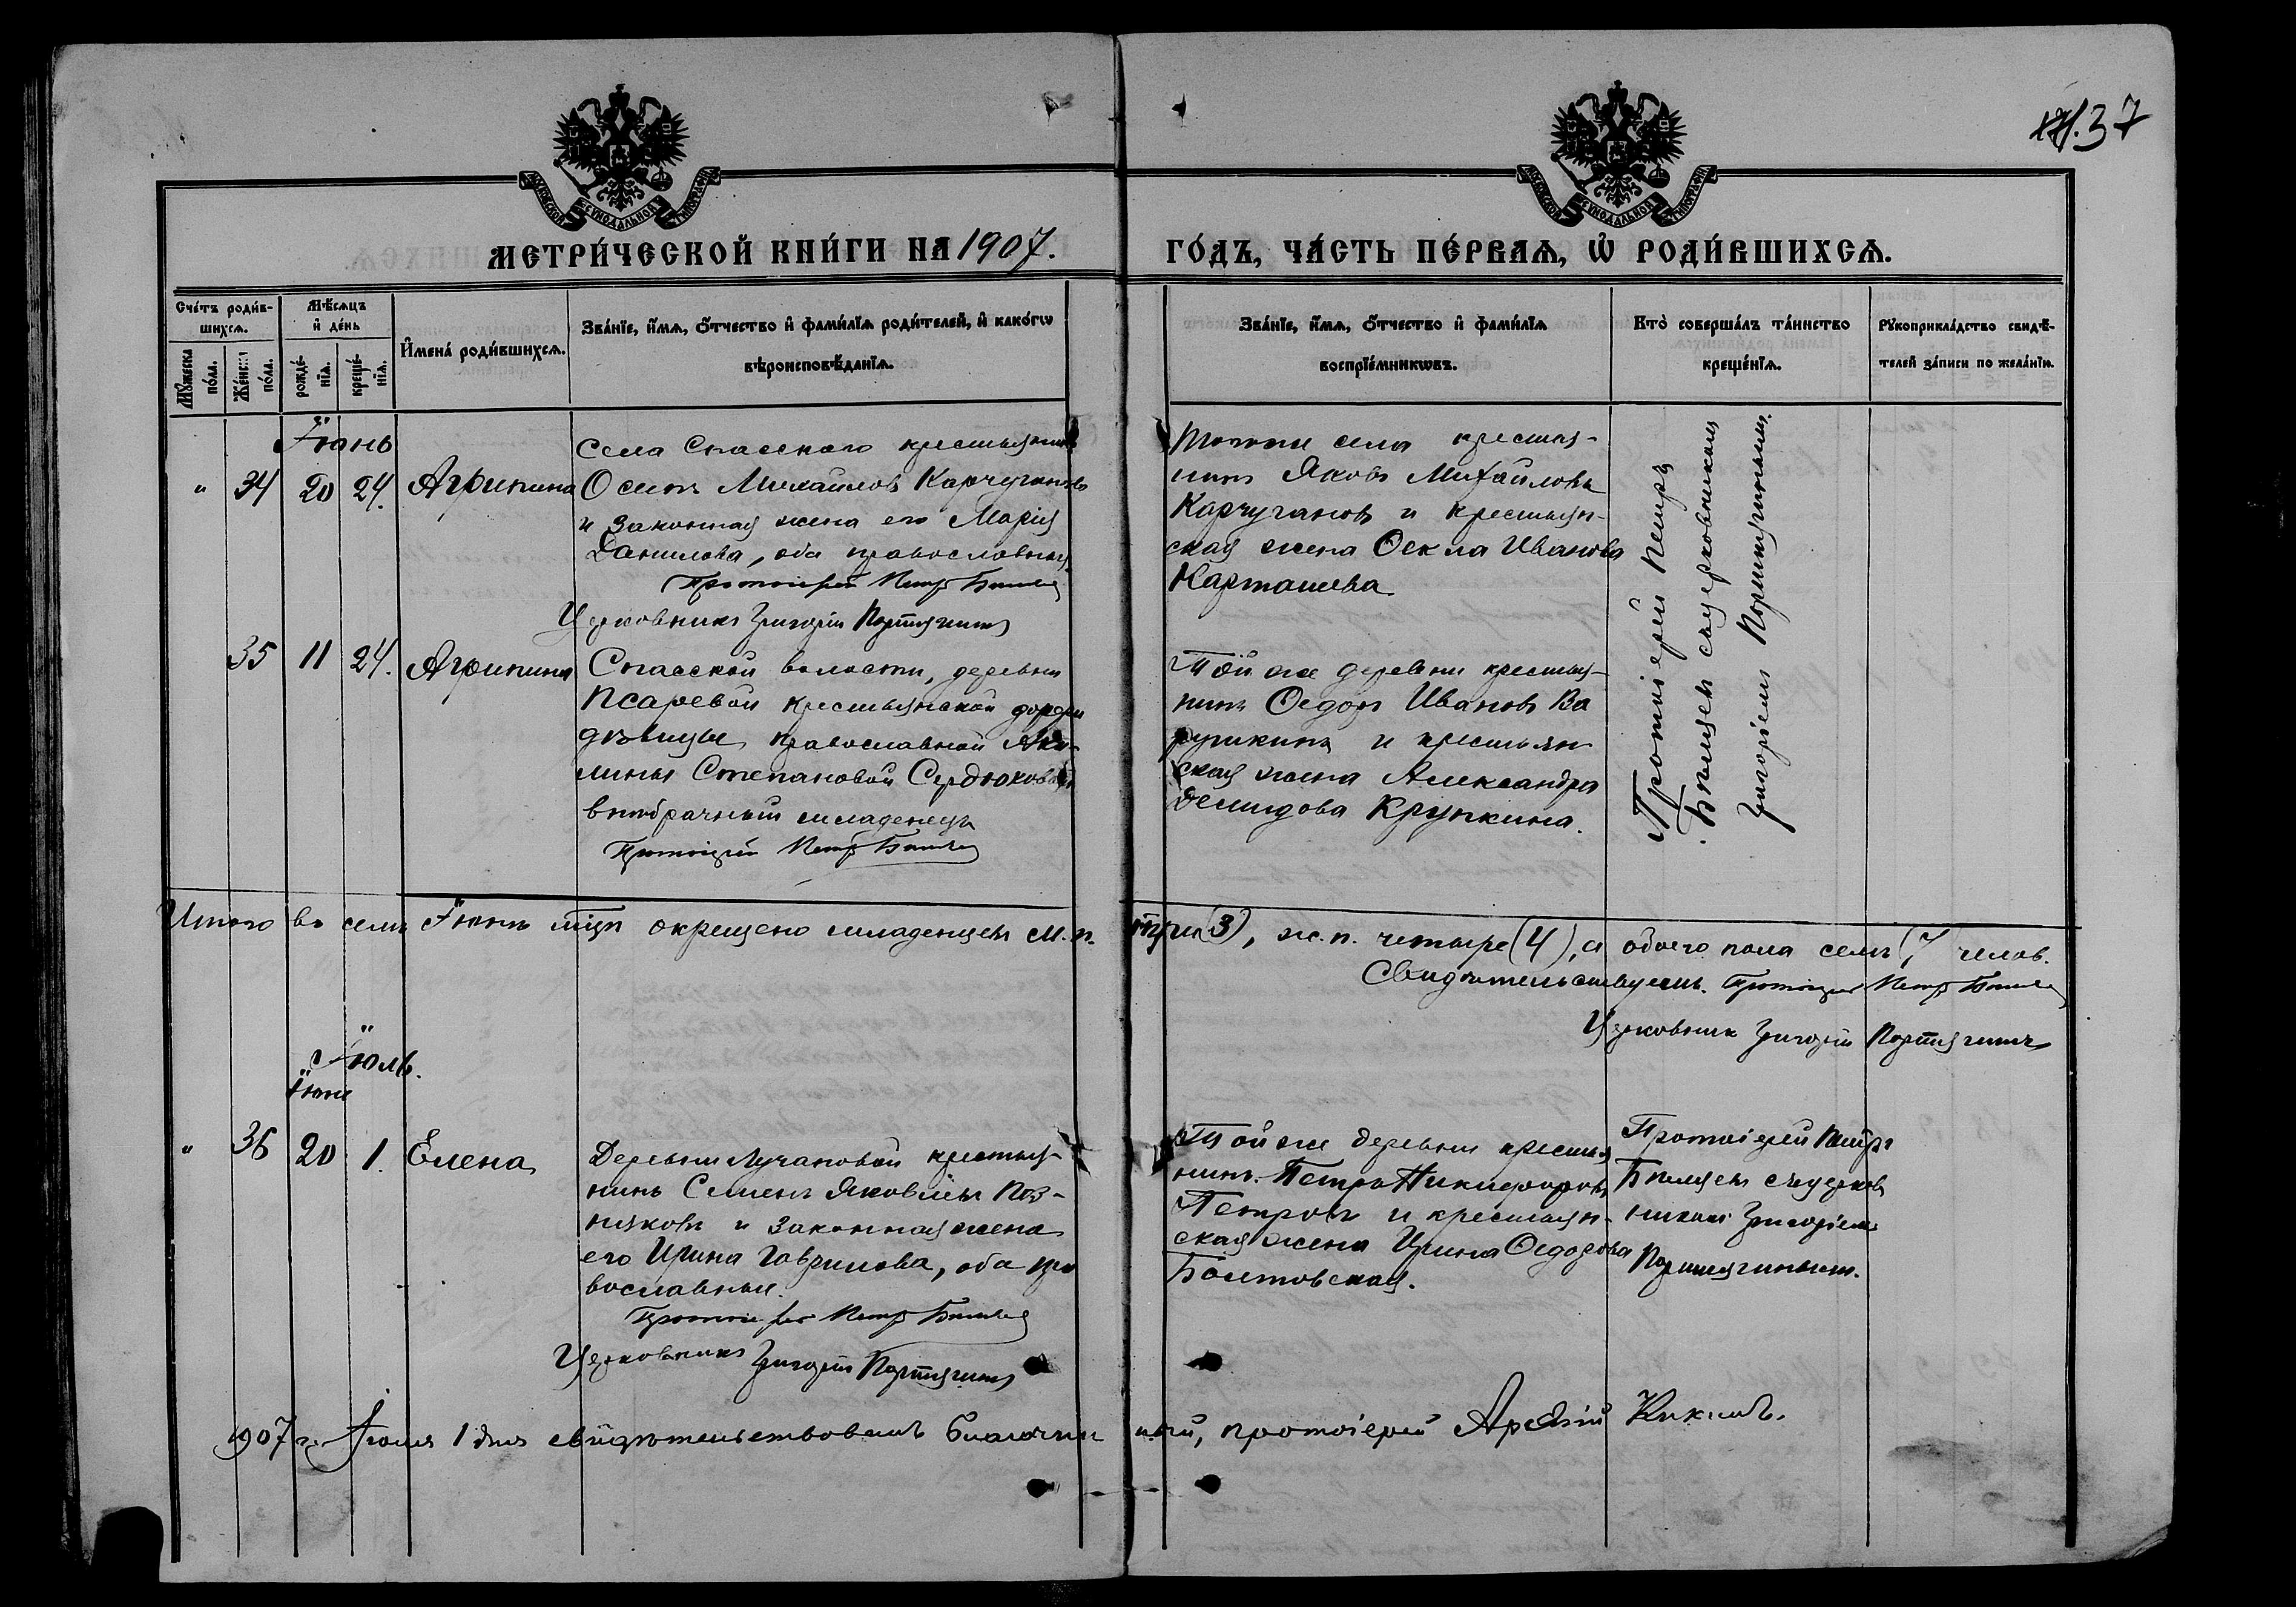 37
МОСКОВСКОЙ СУНОДАЛЬНОЙ ТИПОГРАФІИ
МОСКОВСКОЙ СУНОДАЛЬНОЙ ТИПОГРАФІИ
МЕТРИ́ЧЕСКОЙ КНИ́ГИ НА 1907.
ГО́ДЪ, ЧА́СТЬ ПЕ́РВАѦ, Ѽ РОДИ́ВШИХСѦ.
Сче́тъ роди́в-
шихсѧ.
Мꙋ́жеска по́ла.
Же́нска по́ла.
Мѣ́сѧцъ
и҆ де́нь
рожде́-
нїѧ.
креще́-
нїѧ.
И҆мена́ роди́вшихсѧ.
Зва́нїе, и҆́мѧ, ѻ҆́тчество и҆ фами́лїѧ роди́телей, и҆ како́гѡ
вѣроисповѣ́данїѧ.
Зва́нїе, и҆́мѧ, ѻ҆́тчество и҆ фами́лїѧ
воспрїе́мникѡвъ.
Кто̀ соверша́лъ та́инство
креще́нїѧ.
Рꙋкоприкла́дство свидѣ́-
телей за́писи по жела́нїю.
Іюнь
" 34 20 24. Агрипина
Села Спасского крестьянинъ
Осипъ Михайловъ Карчугановъ
и законная жена его Марія
Данилова, оба православные
Протоіерей Петръ
Церковникъ Григорій Портнягинъ
Того же села крестья-
нинъ Яковъ Михайловъ
Карчугановъ и крестьян-
ская жена Ѳекла Иванова
Карташева
Протоіерей Петръ
съ церковникомъ
Григоріемъ Портнягинымъ.
35 11 24. Агрипина
Спасской волости, деревни
Псаревой крестьянской дочери
дѣвицы православной Аку-
лины Степановой Сердюковой
внѣбрачный младенецъ
Протоіерей Петръ
Той же деревни крестья-
нинъ Ѳедоръ Ивановъ Ва
рушкинъ и крестьян
ская жена Александра
Демидова Крупкина.
Итого въ семъ Іюнѣ мѣцѣ окрещено младенцевъ м. п. три (3), ж. п. четыре (4), а обоего пола семь (7 челов.
Свидѣтельствуемъ. Протоіерей Петръ
Церковник Григорій Портнягинъ
Іюль.
Іюня
" 36 20 1. Елена
Деревни Лучановой крестья-
нинъ Семенъ Яковлевъ Поз-
няковъ и законная жена
его Ирина Гаврилова, оба пра
вославные.
Протоіерей Петръ
Церковникъ Григорій Портнягинъ
Той же деревни крестья
нинъ Петръ Никифоровъ
Петровъ и крестьян-
ская жена Ирина Ѳедорова
Болтовская.
Протоіерей Петръ
съ церков
никомъ Григоріемъ
Портнягинымъ.
1907 г. Іюля 1 дня свидѣтельствовалъ благочинный, протоіерей Арсеній